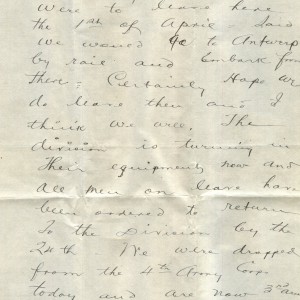 were to leave here
the 1st of April said
we would go to Antwerp
by rail and Embark from
There. Certainly Hope we
do leave then and I
think we will. The
division is turning in
Their equipment now and
all men on leave have
been ordered to return
To the Division by the
24th We were dropped
from the 4th Army Corps
today and are now 3rd